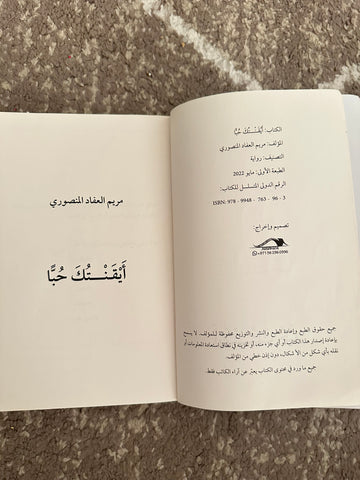 الكتاب: أَيْقَنْتُكَ حُبًّا
المؤلف: مريم العفاد المنصوري
التصنيف: رواية
الطبعة الأولى: مايو 2022
الرقم الدولي المتسلسل للكتاب:
ISBN: 978 - 9948 - 763 - 96 - 3
تصميم وإخراج:
جميع حقوق الطبع وإعادة الطبع والنشر والتوزيع محفوظة للمؤلف. لا يسمح
بإعادة إصدار هذا الكتاب أو أي جزء منه، أو تخزينه في نطاق استعادة المعلومات أو
نقله بأي شكل من الأشكال، دون إذن خطي من المؤلف.
جميع ما ورد في محتوى الكتاب يعبّر عن آراء الكاتب فقط.
مريم العفاد المنصوري
أَيْقَنْتُكَ حُبًّا